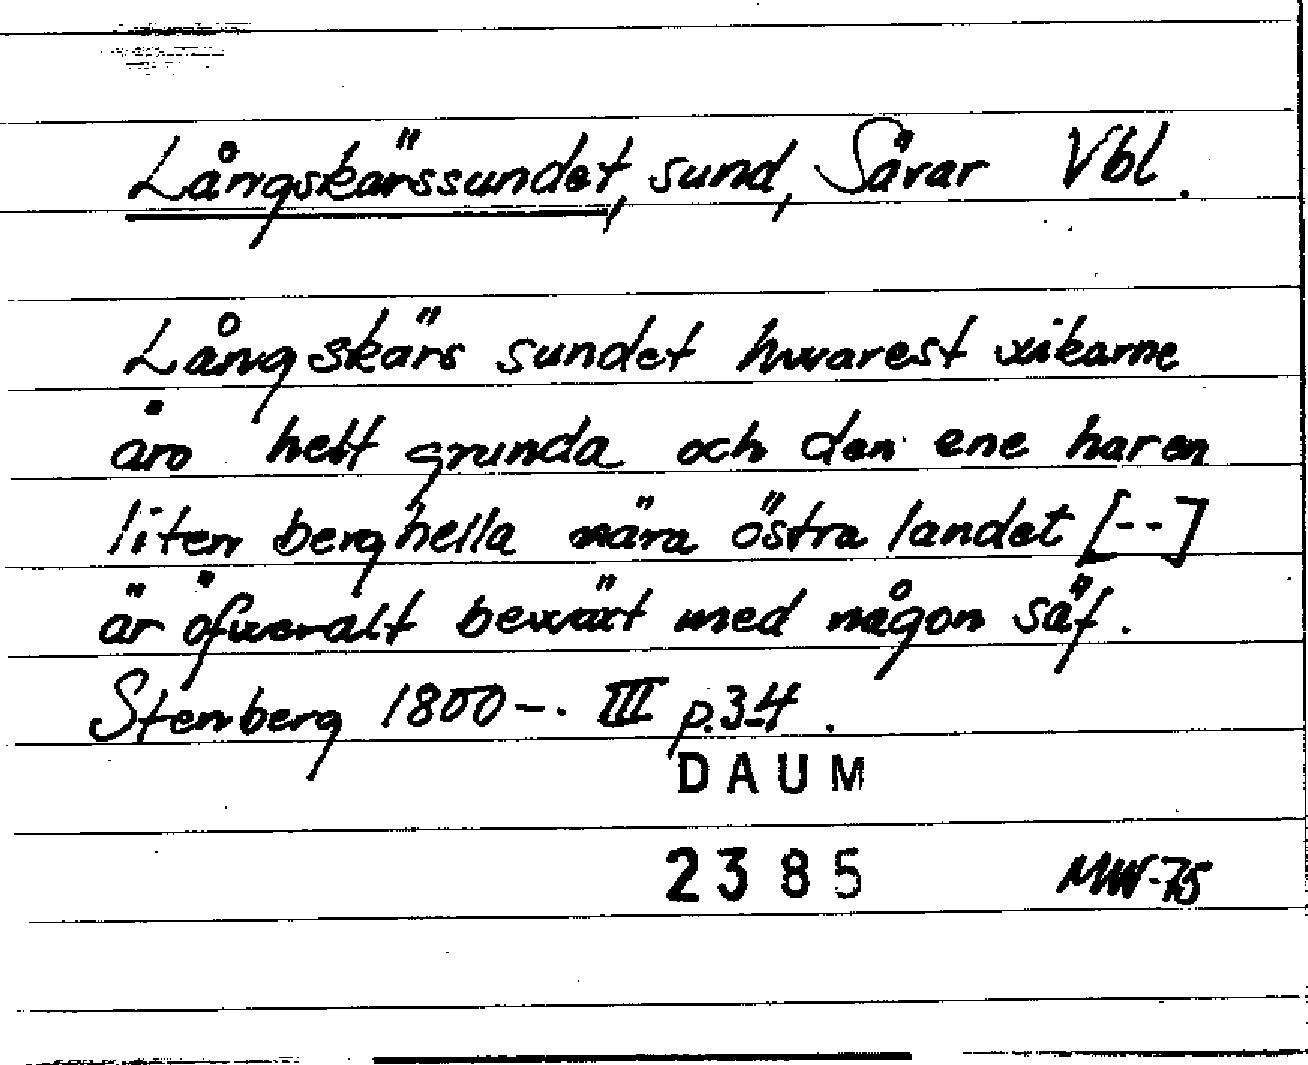 Långskärssundet, sund, Sävar Vbl.
Lång skärs sundet hvarest vikarne
äro helt grunda och den ene har en
liten berghella nära östra landet [--]
är öfveralt beväxt med någon säf.
Stenberg 1800-. III p.34.
DAUM
2385 MW-75